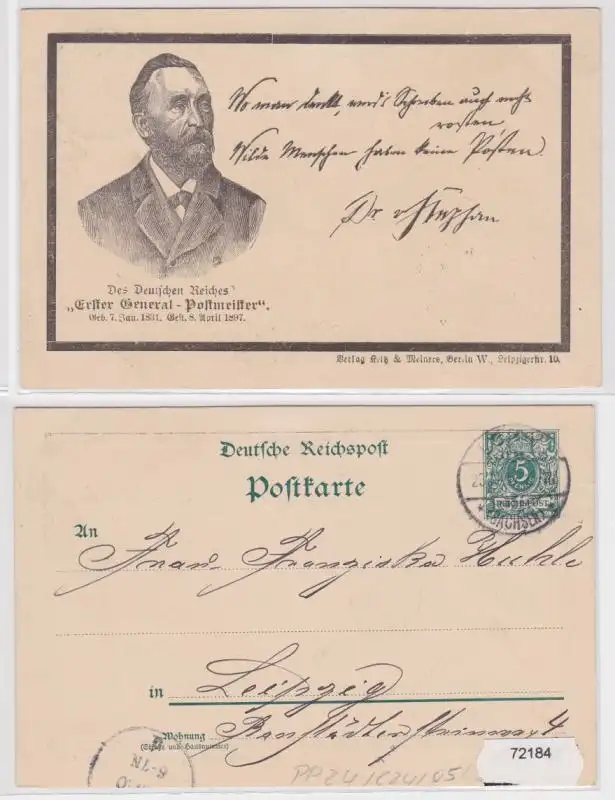 Wo man denkt, wird's Schreiben auch nicht
rosten,
Wilde Menschen haben keine Posten.
Dr. v Stephan
Des Deutschen Reiches
„Erster General-Postmeister“.
Geb. 7. Jan. 1831. Gest. 8. April 1897.
Verlag & Meiners, Berlin W., Leipzigerstr. 10.
Deutsche Reichspost
Postkarte
5
PFENNIG
REICHSPOST
SACHSEN
An Frau Franziska Huhle
in Leipzig
Wohnung Ranstädter Steinweg 4
(Straße und Hausnummer)
6-7N
72184